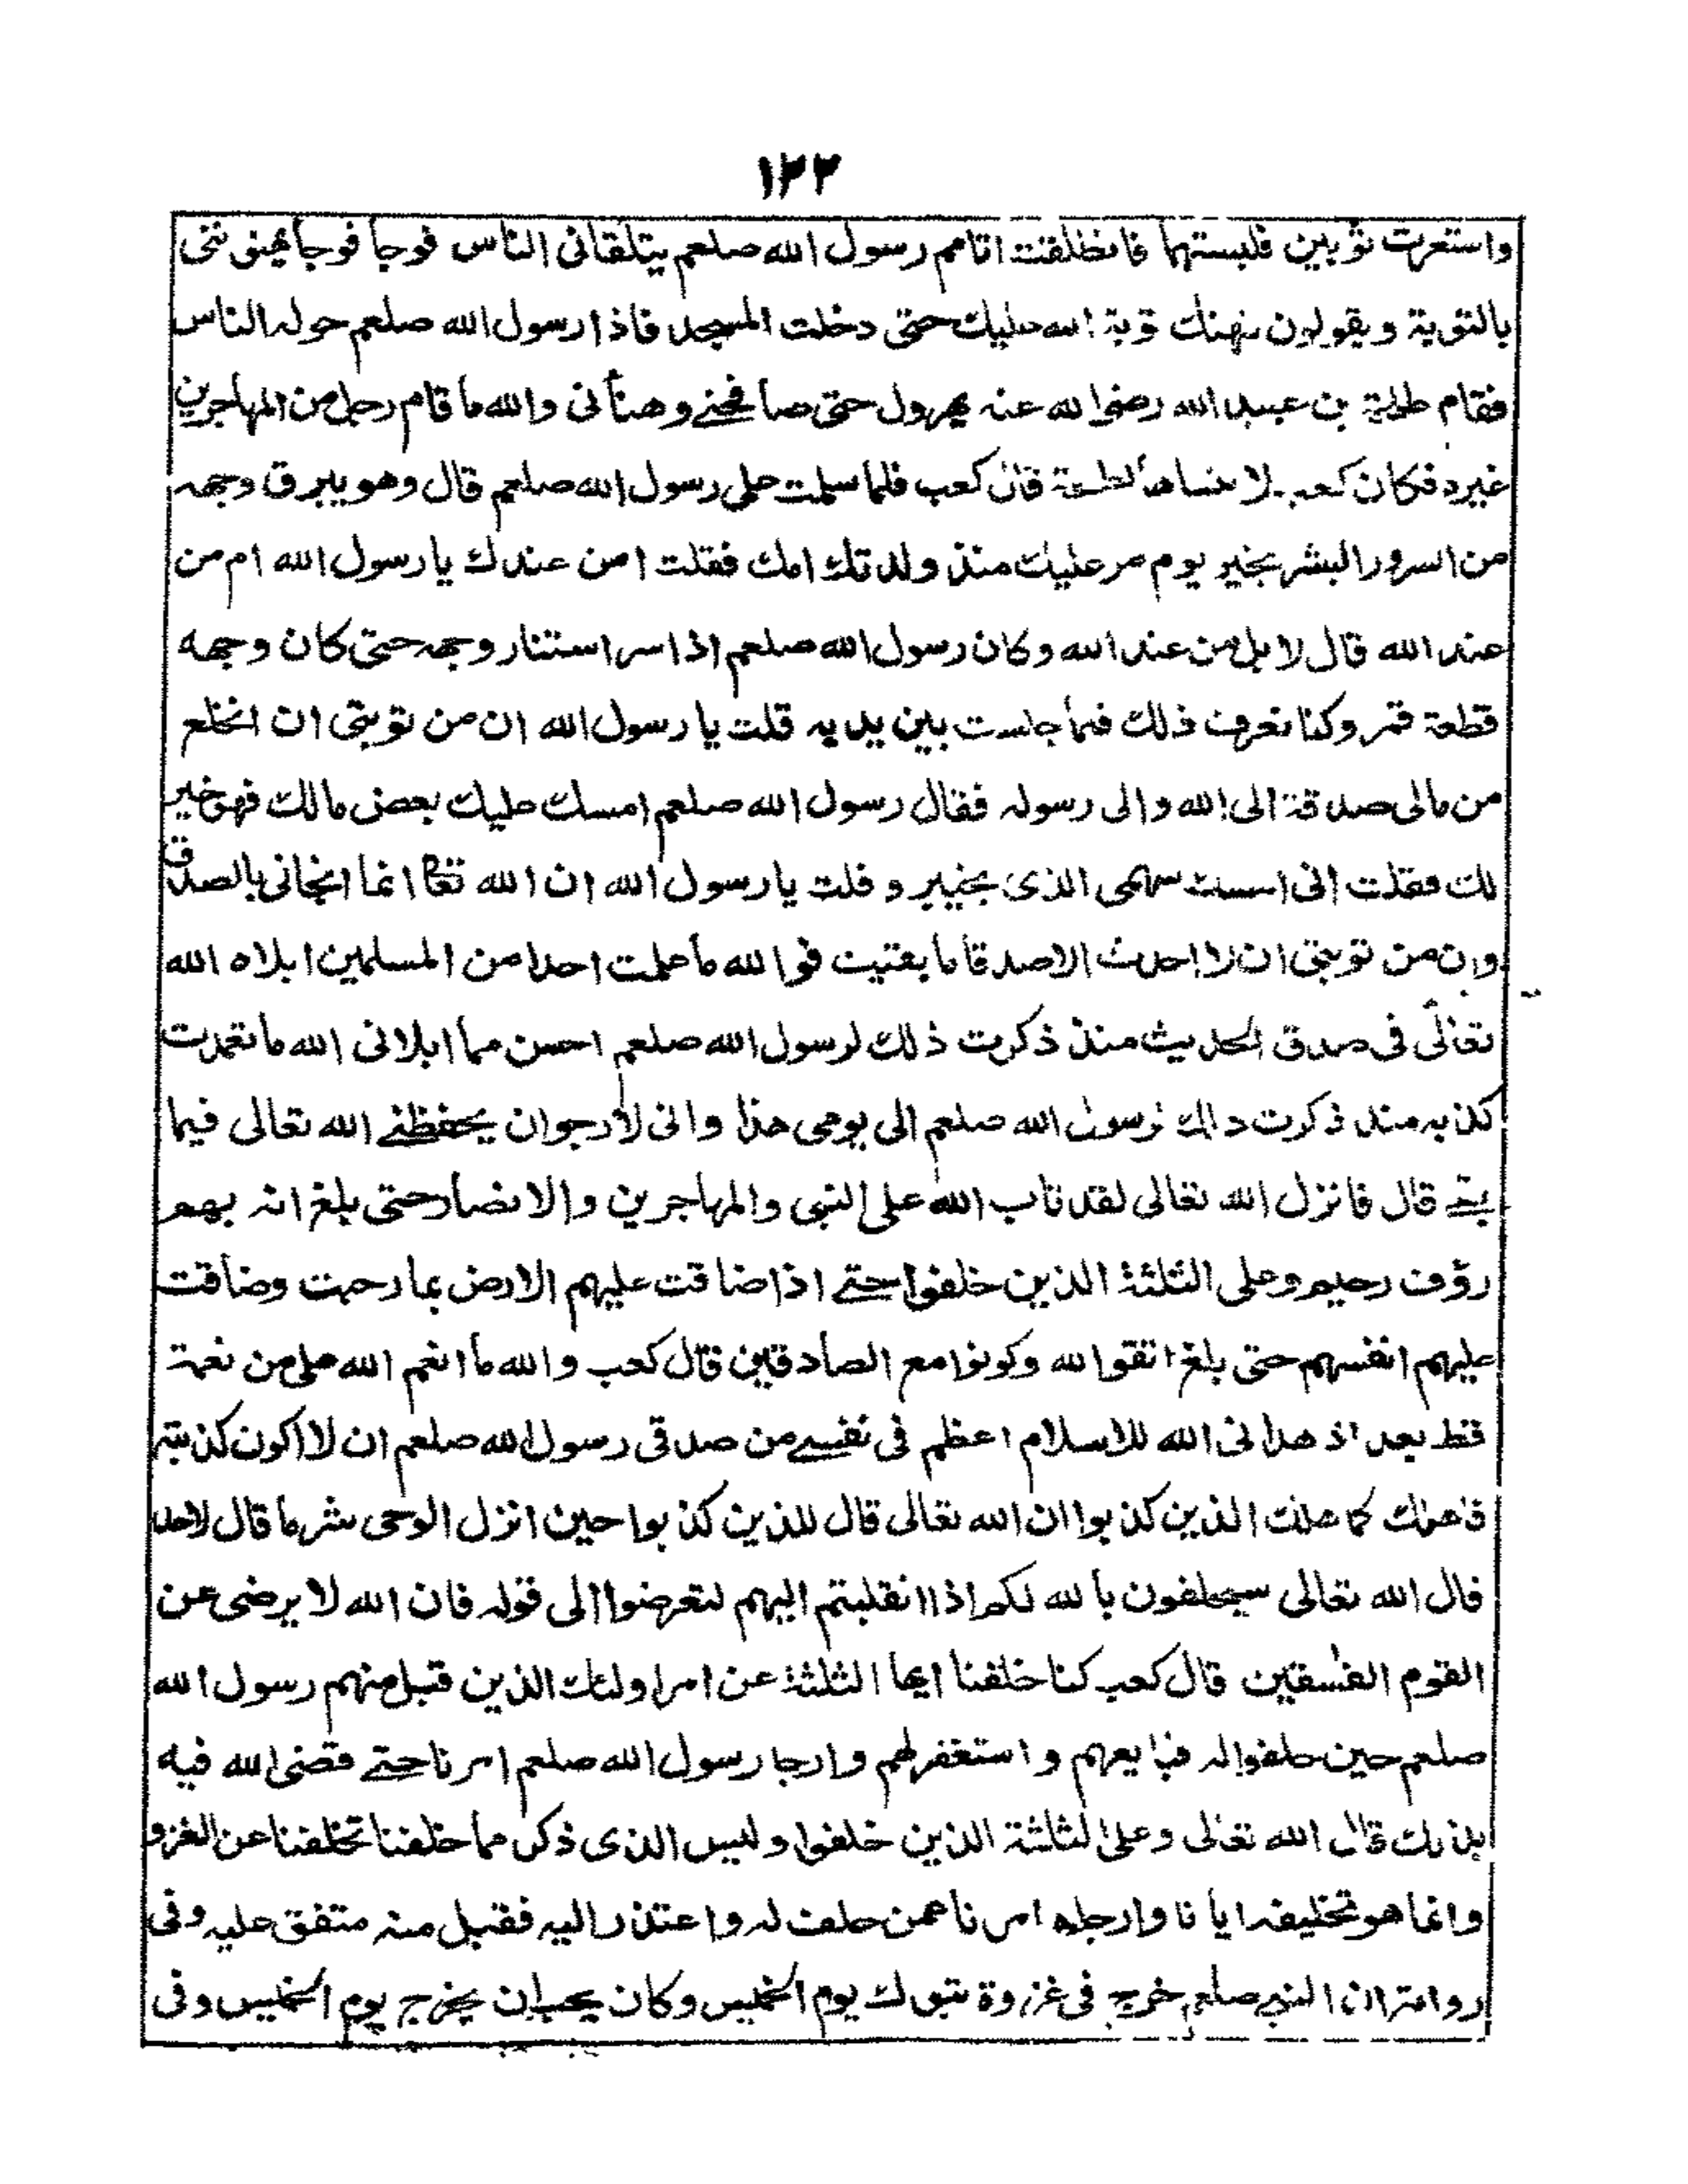 ١٢٢
واستعرت ثوبين فلبستهما فانطلقت اتامم رسول الله صلعم يتلقانى الناس فوجا فوجا يهنونى
بالتوبة ويقولون نهنك توبة الله عليك حتى دخلت المسجد فاذا رسول الله صلعم حوله الناس
فقام طلحة بن عبيد الله رضى الله عنه يهرول حتى صافحنى وهنأنى والله ما قام رجل من المهاجرين
غيره فكان كعب لا ينساها لطلحة قال كعب فلما سلمت على رسول الله صلعم قال وهو يبرق وجهه
من السرور البشر بخير يوم مر عليك منذ ولدتك امك فقلت امن عندك يا رسول الله ام من
عند الله قال لا بل من عند الله وكان رسول الله صلعم اذا سر استنار وجهه حتى كان وجهه
قطعة قمر وكنا نعرف ذلك فلما جلست بين يديه قلت يا رسول الله ان من توبتى ان انخلع
من مالى صدقة الى الله والى رسوله فقال رسول الله صلعم امسك عليك بعض مالك فهو خير
لك فقلت انى امسك سهمى الذى بخيبر وقلت يا رسول الله ان الله تعا انما انجانى بالصدق
وان من توبتى ان لا احدث الا صدقا ما بقيت فوالله ما علمت احدا من المسلمين ابلاه الله
تعالى فى صدق الحديث منذ ذكرت ذلك لرسول الله صلعم احسن مما ابلانى الله ما تعمدت
كذبه منذ ذكرت ذلك لرسول الله صلعم الى يومى هذا وانى لارجو ان يحفظنى الله تعالى فيما
بقى قال فانزل الله تعالى لقد تاب الله على النبى والمهاجرين والانصار حتى بلغ انه بهم
رؤف رحيم وعلى الثلثة الذين خلفوا حتى اذا ضاقت عليهم الارض بما رحبت وضاقت
عليهم انفسهم حتى بلغ اتقوا الله وكونوا مع الصادقين قال كعب والله ما انعم الله على من نعمة
قط بعد اذ هدانى الله للاسلام اعظم فى نفسى من صدقى رسول الله صلعم ان لا اكون كذبته
فاهلك كما هلك الذين كذبوا ان الله تعالى قال للذين كذبوا حين انزل الوحى شر ما قال لاحد
قال الله تعالى سيحلفون بالله لكم اذا انقلبتم اليهم لتعرضوا الى قوله فان الله لا يرضى عن
القوم الفسقين قال كعب كنا خلفنا ايها الثلثة عن امر اولئك الذين قبل منهم رسول الله
صلعم حين حلفوا له فبايعهم واستغفر لهم وارجا رسول الله صلعم امرنا حتى قضى الله فيه
بذلك قال الله تعالى وعلى الثلثة الذين خلفوا وليس الذى ذكر مما خلفنا تخلفنا عن الغزو
وانما هو تخليفه ايانا وارجاءه امرنا عمن حلف له واعتذر اليه فقبل منه متفق عليه وفى
رواية ان النبى صلعم خرج فى غزوة تبوك يوم الخميس وكان يحب ان يخرج يوم الخميس وفى